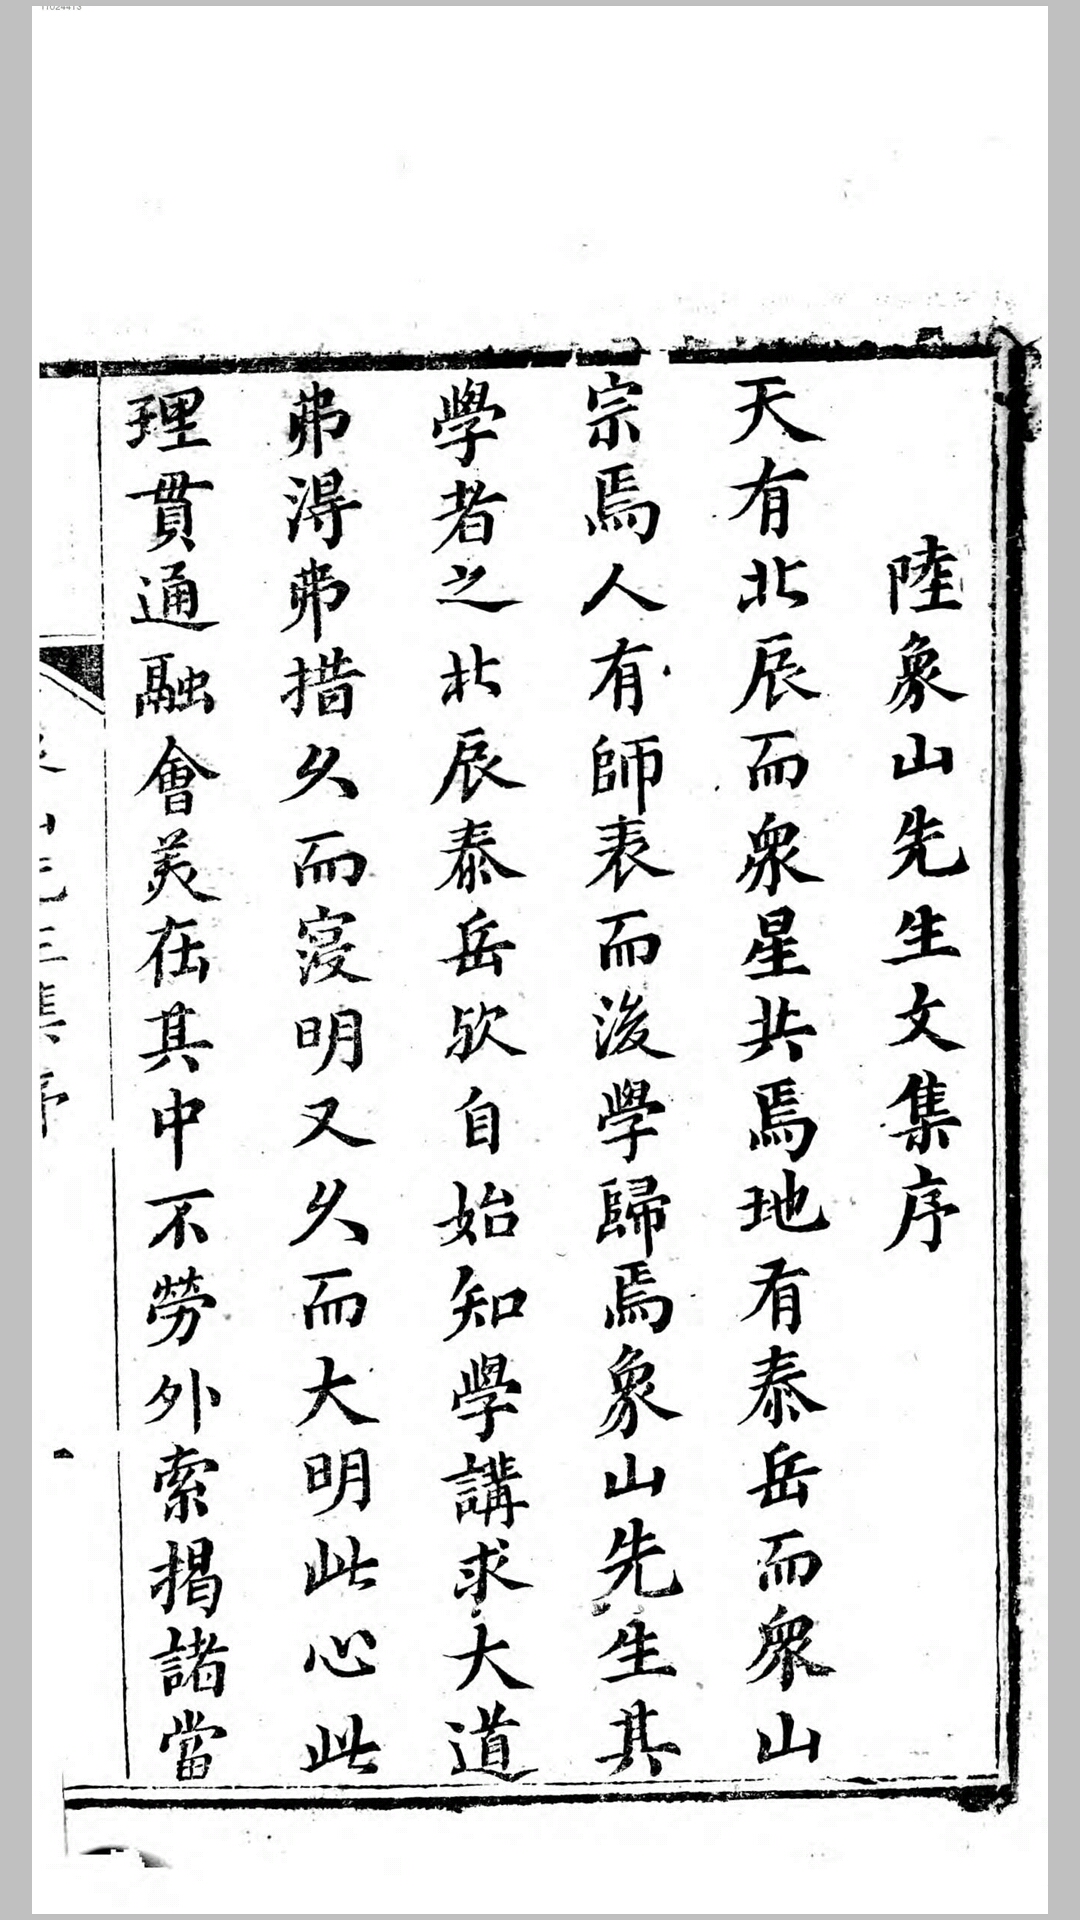 陸象山先生文集序
天有北辰而衆星共焉地有泰岳而衆山
宗焉人有師表而後學歸焉象山先生其
學者之北辰泰岳欤自始知學講求大道
弗得弗措久而寖明又久而大明此心此
理貫通融會美在其中不勞外索揭諸當
11024413